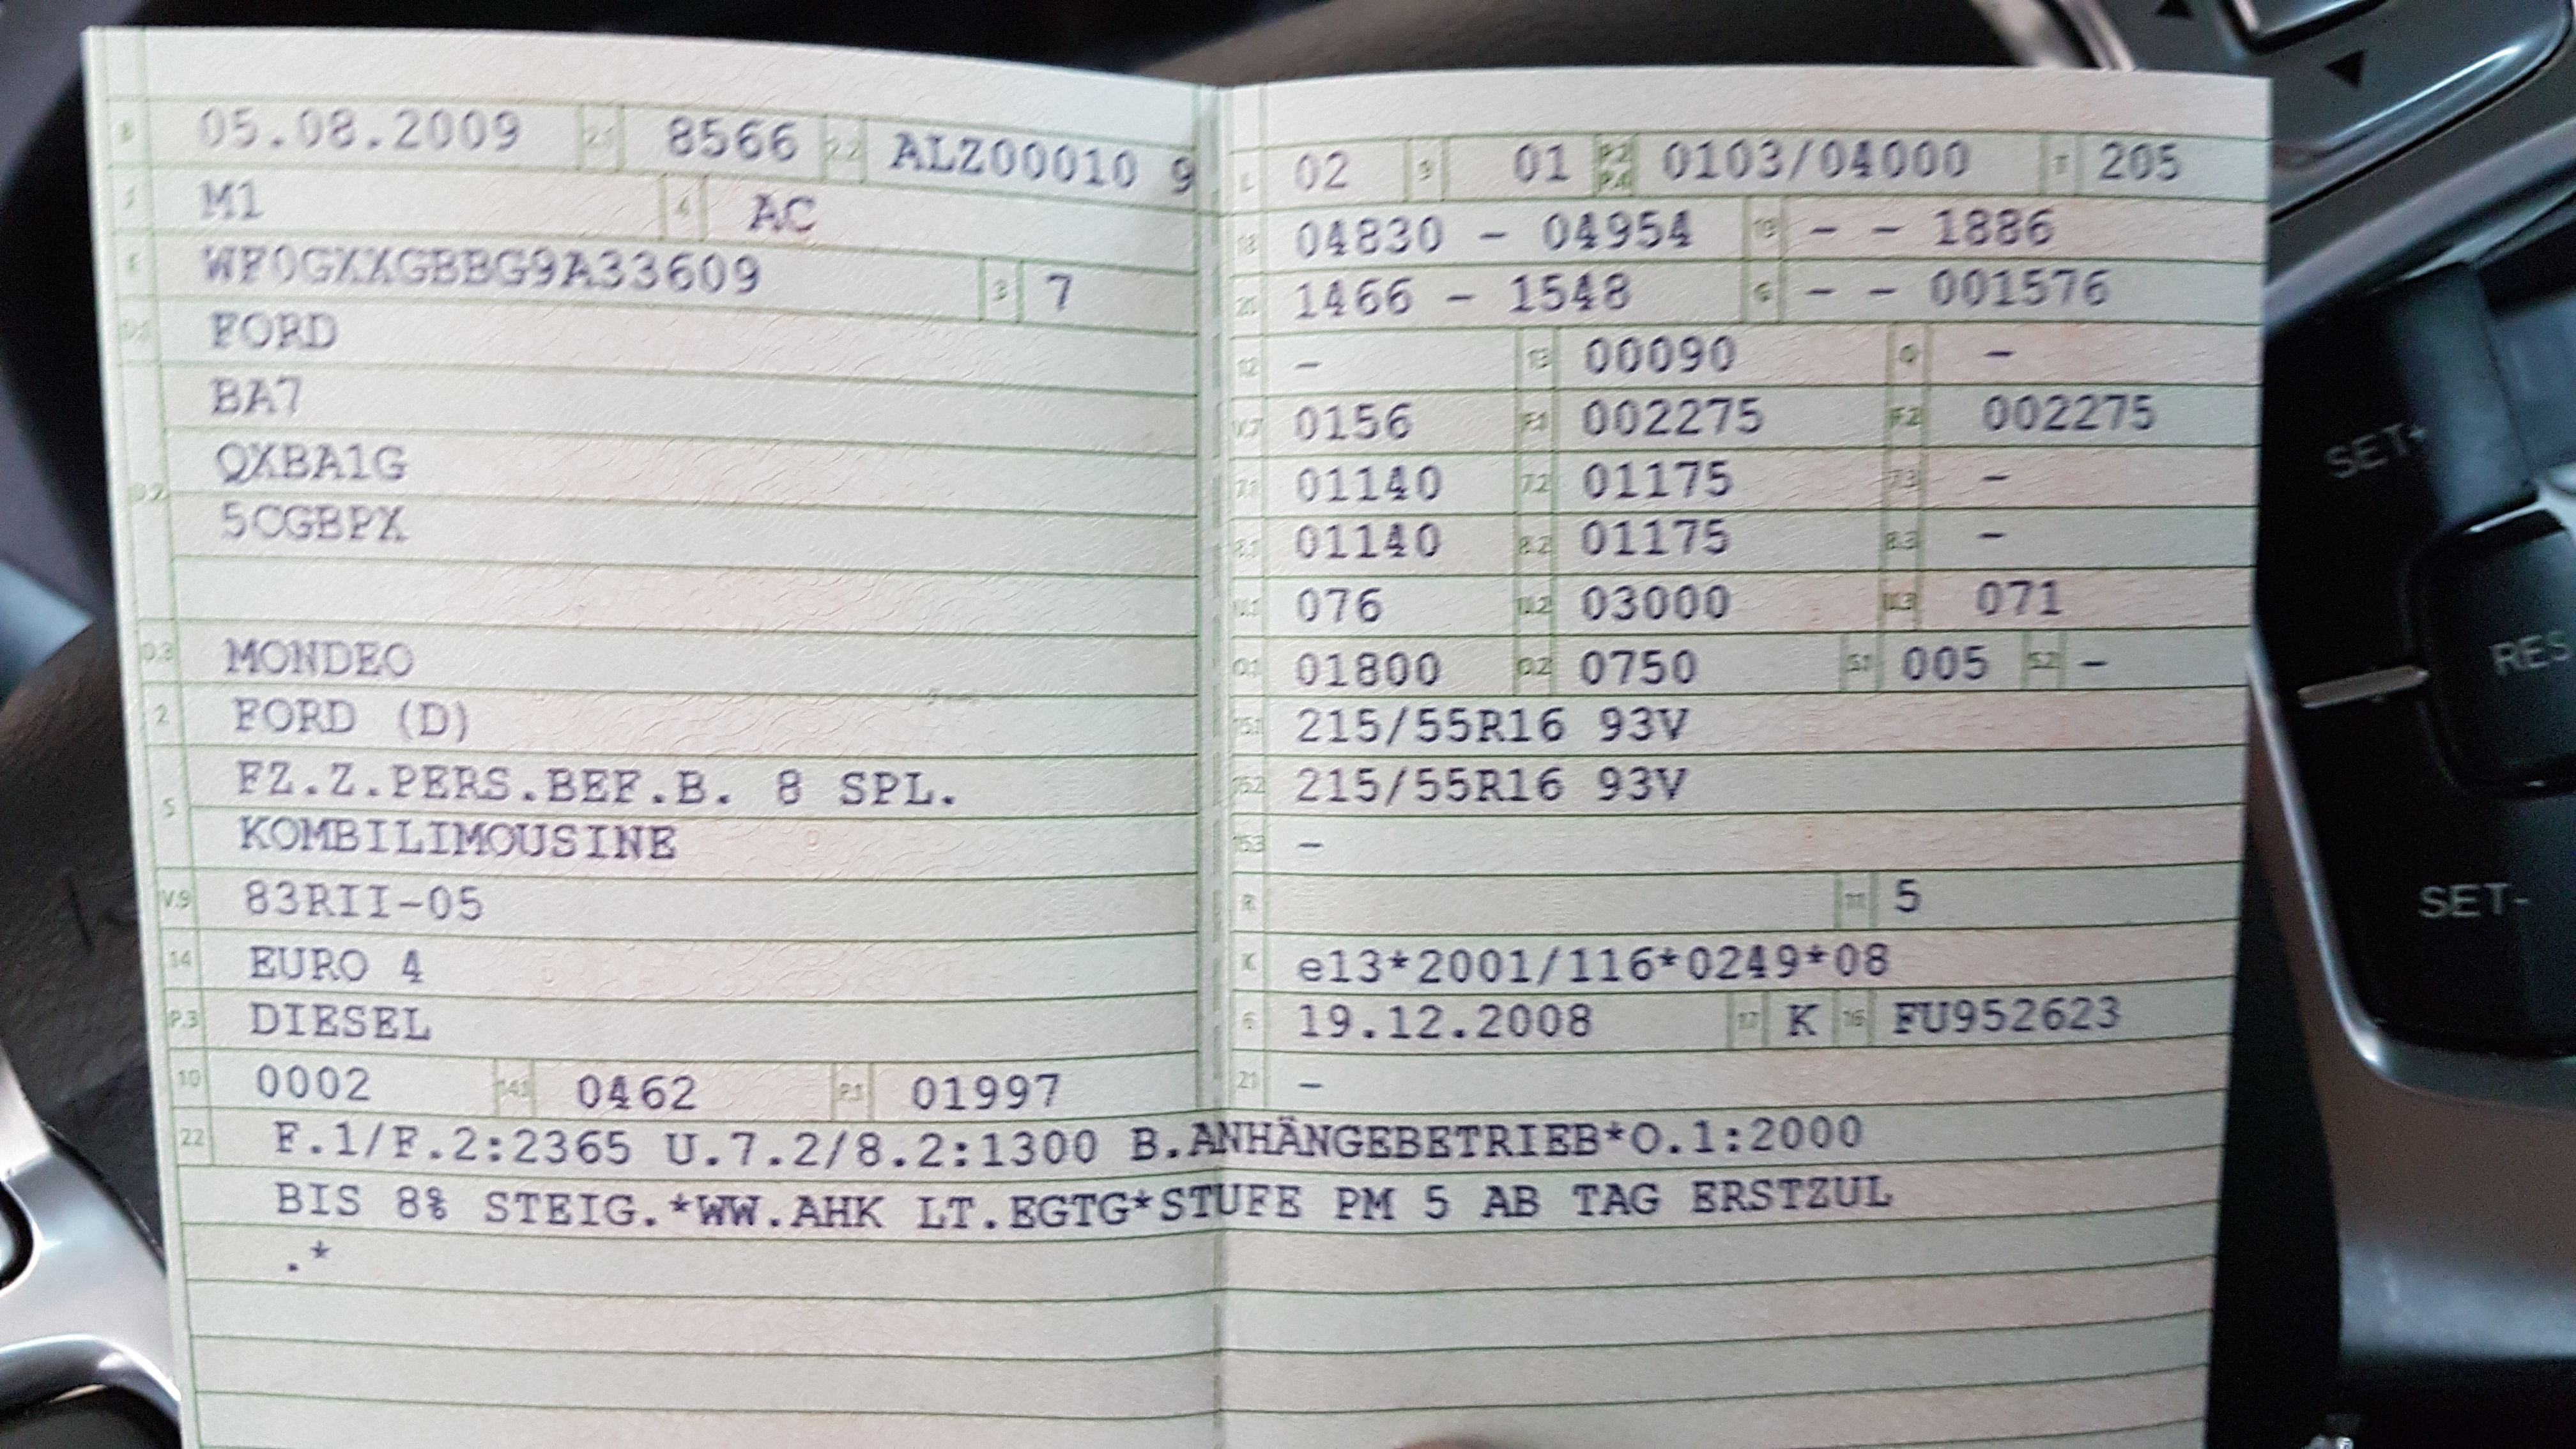 B 05.08.2009 2.1 8566 2.2 ALZ00010 9
J M1 4 AC
E WF0GXXGBBG9A33609 3 7
D.1 FORD
BA7
D.2 QXBA1G
5CGBPX
D.3 MONDEO
2 FORD (D)
5 FZ.Z.PERS.BEF.B. 8 SPL.
KOMBILIMOUSINE
V.9 83RII-05
14 EURO 4
P.3 DIESEL
10 0002 14.1 0462 P.1 01997
L 02 9 01 P.2 P.4 0103/04000 T 205
18 04830 - 04954 19 - - 1886
20 1466 - 1548 G - - 001576
12 - 13 00090 Q -
V.7 0156 F.1 002275 F.2 002275
7.1 01140 7.2 01175 7.3 -
8.1 01140 8.2 01175 8.3 -
U.1 076 U.2 03000 U.3 071
O.1 01800 O.2 0750 S.1 005 S.2 -
15.1 215/55R16 93V
15.2 215/55R16 93V
15.3 -
R 11 5
K e13*2001/116*0249*08
6 19.12.2008 17 K 16 FU952623
21 -
22 F.1/F.2:2365 U.7.2/8.2:1300 B.ANHÄNGEBETRIEB*O.1:2000
BIS 8% STEIG.*WW.AHK LT.EGTG*STUFE PM 5 AB TAG ERSTZUL
.*
SET+
RES
SET-